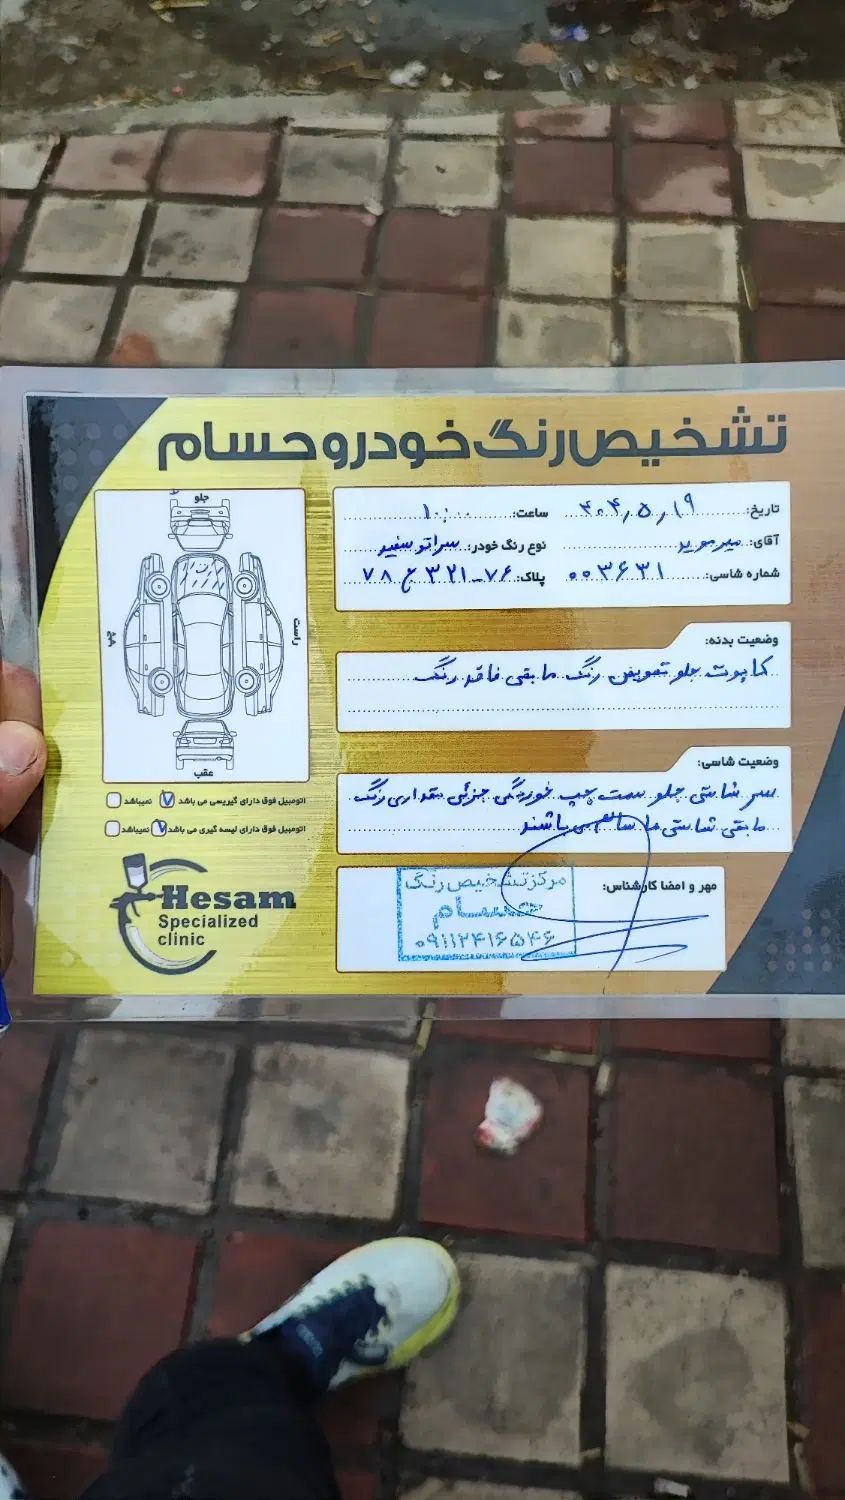 تشخیص رنگ خودرو حسام
تاریخ: ۴۰۴٫۵٫۱۹ ساعت: ۱۰:۰۰
آقای: میرموید نوع رنگ خودرو: سراتو سفید
شماره شاسی: ۰۰۳۶۳۱ پلاک: ۷۶-۳۲۱ ع ۷۸
جلو
راست
چپ
عقب
وضعیت بدنه:
کاپوت جلو تعویض رنگ مابقی فاقد رنگ
وضعیت شاسی:
سر شاسی جلو سمت چپ خوردگی جزئی مقداری رنگ
مابقی شاسی ها سالم می باشند
اتومبیل فوق دارای گیربکسی می باشد ✓ نمیباشد
اتومبیل فوق دارای لیسه گیری می باشد ✓ نمیباشد
مهر و امضا کارشناس:
مرکز تشخیص رنگ
حسام
۰۹۱۱۲۴۱۶۵۴۶
Hesam
Specialized
clinic